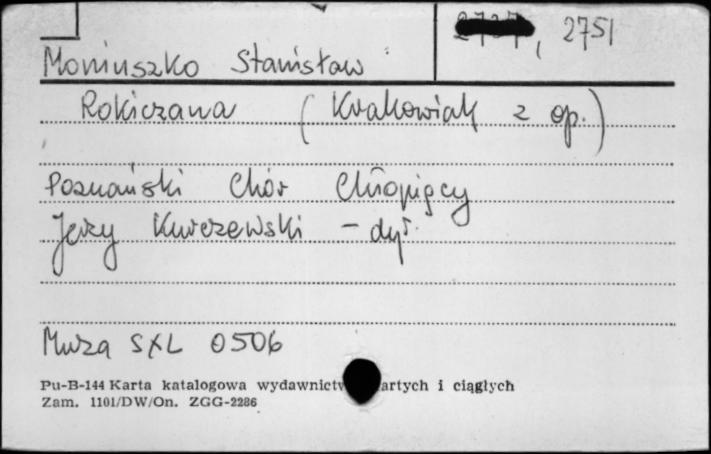 2737, 2751
Moniuszko Stanisław
Rokiczana (Krakowiak z op.)
Poznański Chór Chłopięcy
Jerzy Kurczewski - dyr.
Muza SXL 0506
Pu-B-144 Karta katalogowa wydawnictw artych i ciągłych
Zam. 1101/DW/On. ZGG-2286